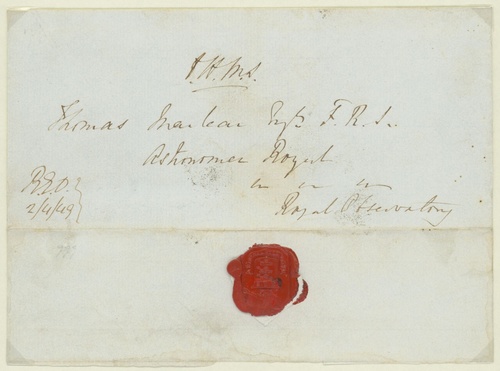 O.H.M.S.
Thomas Maclear Esqr. F.R.S.
Astronomer Royal
Royal Observatory
R.E.O.
2/4/49